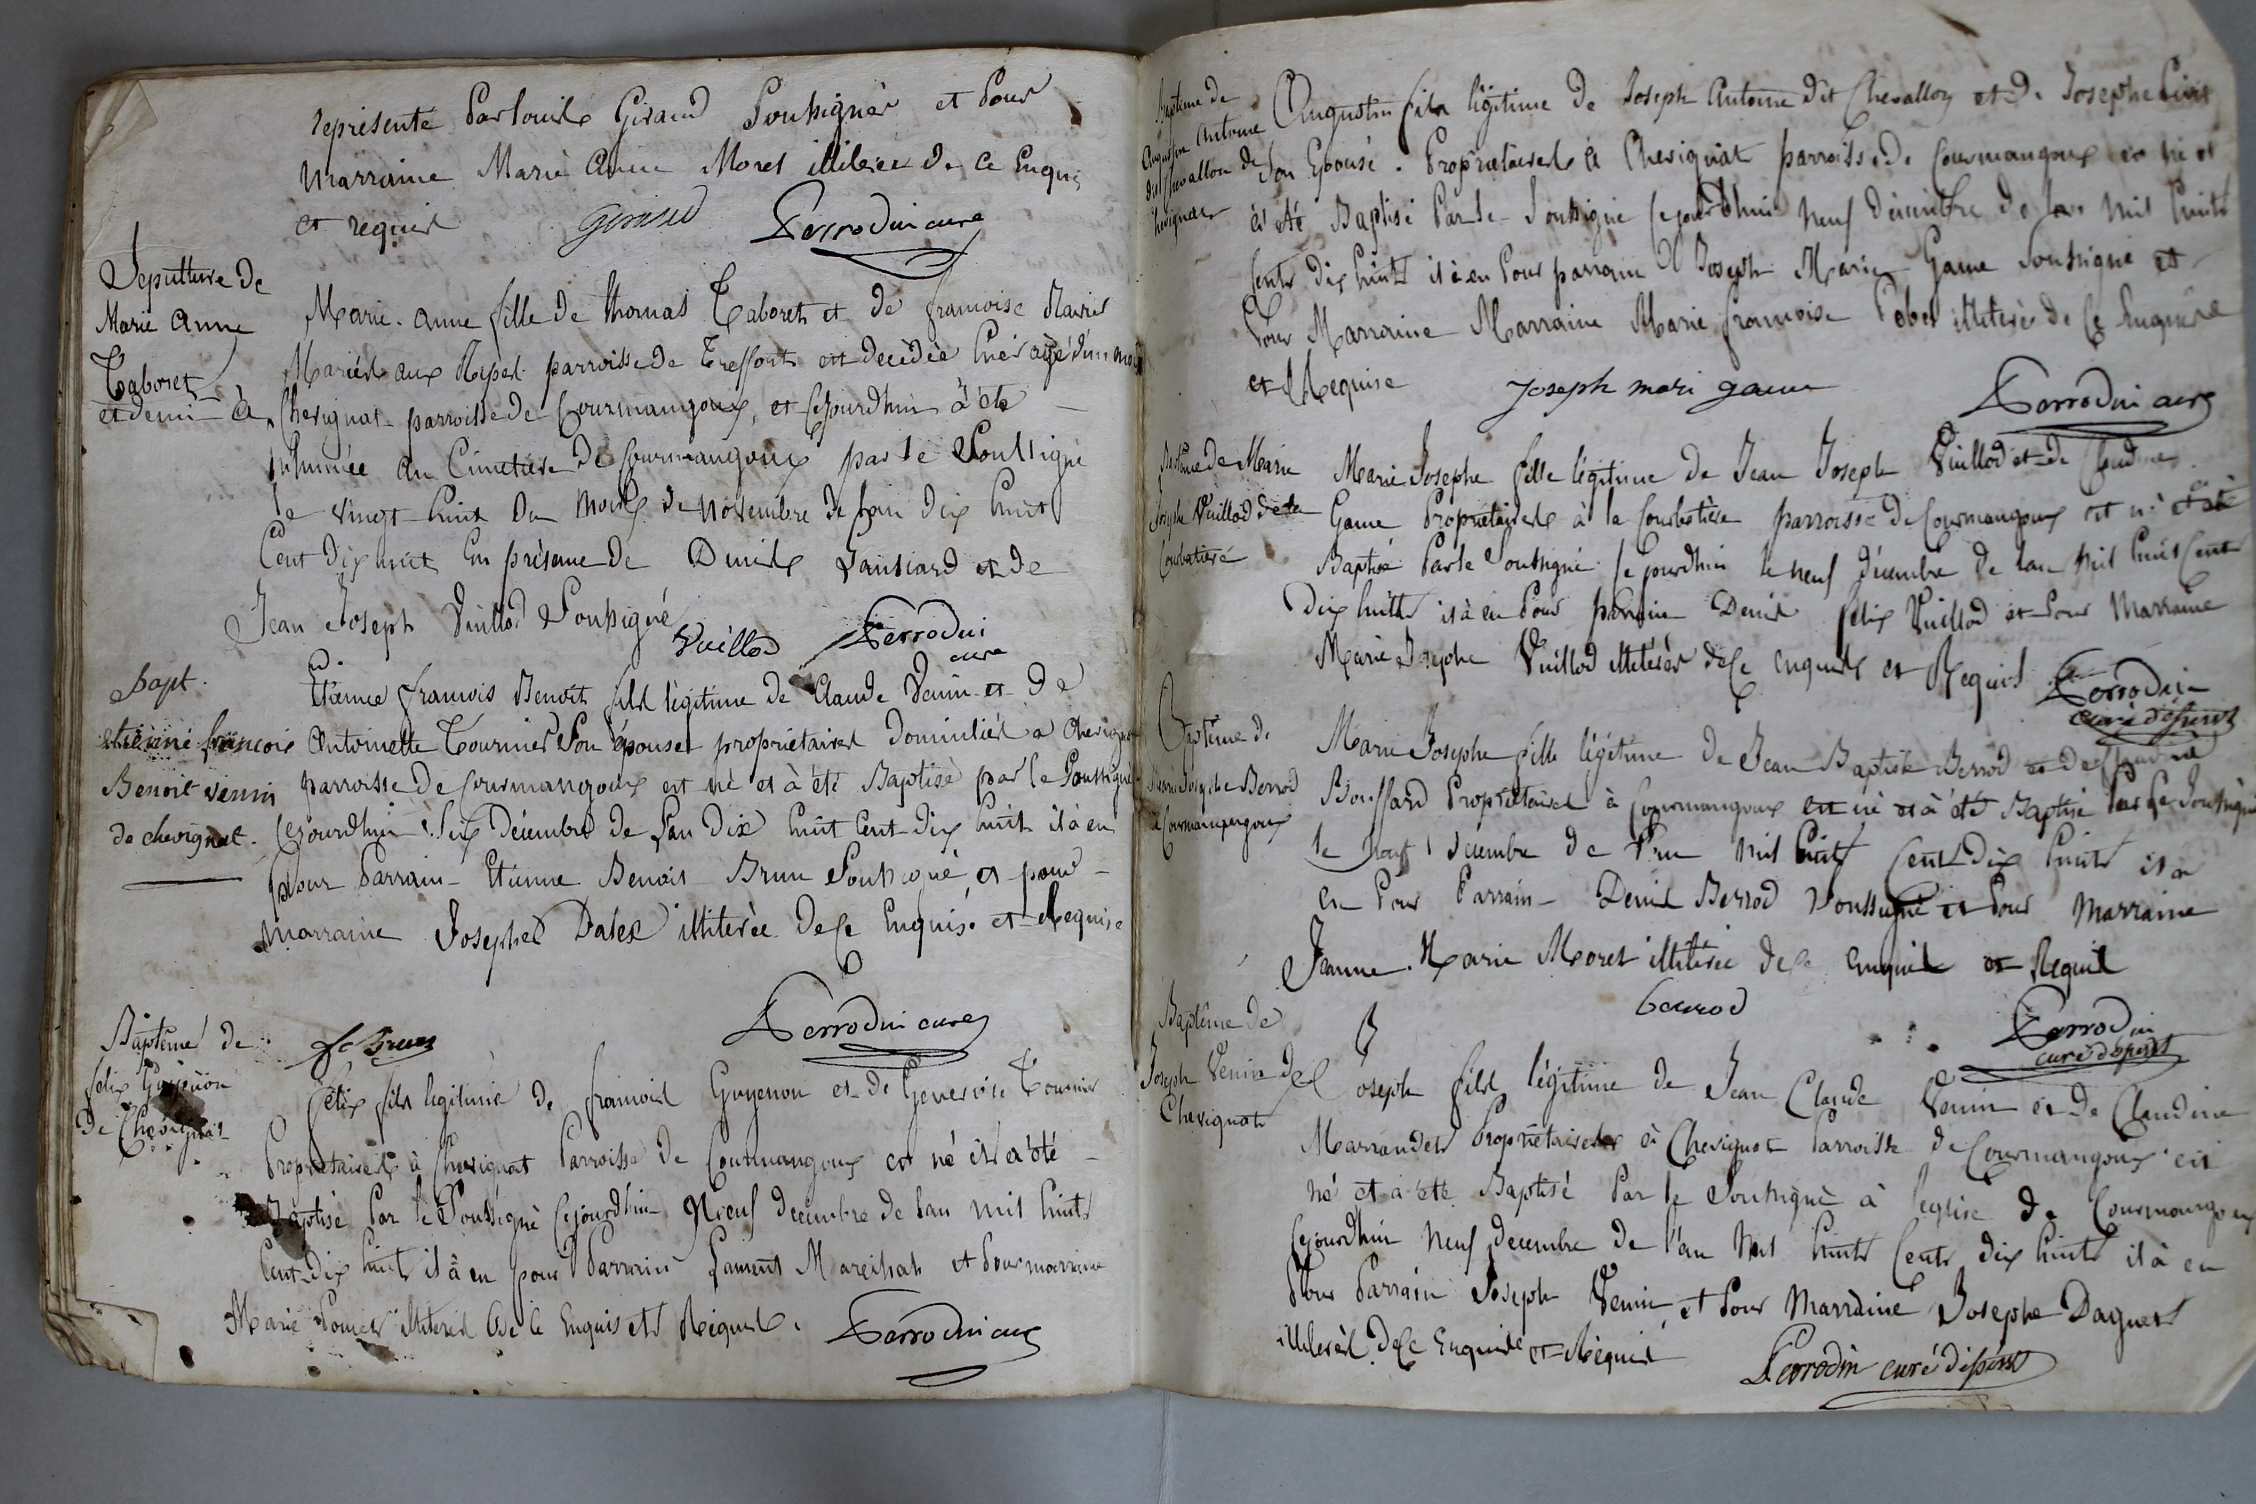 représenté Par louis Giraud Soussigner et Pour
Marraine Marie Anne Moret illiterée de Ce Enquis
et requis
Giraud Perrodin curé
Sepulture de
Marie Anne
Taboret
Marie. anne fille de thomas Taboret et de francoise
Mariés aux parroisse de Treffort est decédée hier agé d'un mois
et demi à Chevignat parroisse de Courmangoux, et Cejourdhui à été
inhumée au Cimetiere de Courmangoux par le Soussigné
le vingt huit du mois de Novembre de lan dix huit
Cent dix huit En présence de Denis et de
Jean Joseph Vuillod Soussigné
Vuillod Perrodin
curé
Bapt.
etiènne françois
Benoit venin
de chevignat.
Etienne francois Benoit fils légitime de Claude Venin et de
Antoinette Tournier Son épouse propriétaires Domiciliés a Chevignat
parroisse de Courmangoux est né et à été Baptisé par le Soussigné
Cejourdhui Six Décembre de lan dix huit Cent dix huit il à eu
pour Parrain Etienne Benoit Brun Soussigné et pour
marraine Josephe illiterée de Ce Enquise et Requise
Perrodin curé
Brun
Baptême de
felix Guyenon
de Chevignat
félix fils legitime de francois Guyenon et de Tournier
Propriétaires à Chevignat Parroisse de Courmangoux est né et à été
Baptisé Par le Soussigné Cejourdhui Neuf décembre de lan mil huit
Cent Dix huit il à eu pour Parrain Marechat et Pour marraine
Marie illiterés de Ce Enquis et Requis. Perrodin curé
Baptême de
Augustin Antoine
dit Chevallon de
Chevignat
Augustin fils légitime de Joseph Antoine dit Chevallon et de Josephe
Son Epouse. Propriétaires à Chevignat parroisse de Courmangoux est né et
à été Baptisé Par le Soussigné Cejourdhui Neuf décembre de lan mil huit
Cent Dix huit il à eu Pour parrain Joseph Marie Game Soussigné et
Pour Marraine Marraine Marie francoise illiterés de Ce Enquise
et Requise
Joseph mari game Perrodin curé
Baptême de Marie
Josephe Vuillod de la
Courbatière
Marie Josephe fille légitime de Jean Joseph Vuillod et de Claudine
Game Propriétaires à la Courbatière parroisse de Courmangoux est né et à été
Baptisé Par le Soussigné Cejourdhui le neuf décembre de lan mil huit Cent
Dix huit il à eu Pour parrain Denis felix Vuillod et Pour Marraine
Marie Josephe Vuillod illiterés de Ce Enquis et Requis
Perrodin
curé
Baptême de
Marie Josephe Berrod
à Courmangoux
Marie Josephe fille légitime de Jean Baptiste Berrod et de Claudine
Bouffard Propriétaires à Courmangoux est né et à été Baptisé Par le Soussigné
le Neuf décembre de l'an mil huit Cent Dix huit il à
eu Pour Parrain Denis Berrod Soussigné et Pour Marraine
Jeanne Marie Moret illiterée de Ce Enquis et Requis
berrod
Perrodin
curé
Baptême de
Joseph Venin de
Chevignat
Joseph fils légitime de Jean Claude Venin et de Claudine
Propriétaires à Chevignat Parroisse de Courmangoux est
né et à été Baptisé Par le Soussigné à leglise de Courmangoux
Cejourdhui Neuf décembre de l'an mil huit Cent dix huit il à eu
Pour Parrain Joseph Venin et Pour Marraine Josephe
illiterés de Ce Enquis et Requis
Perrodin curé